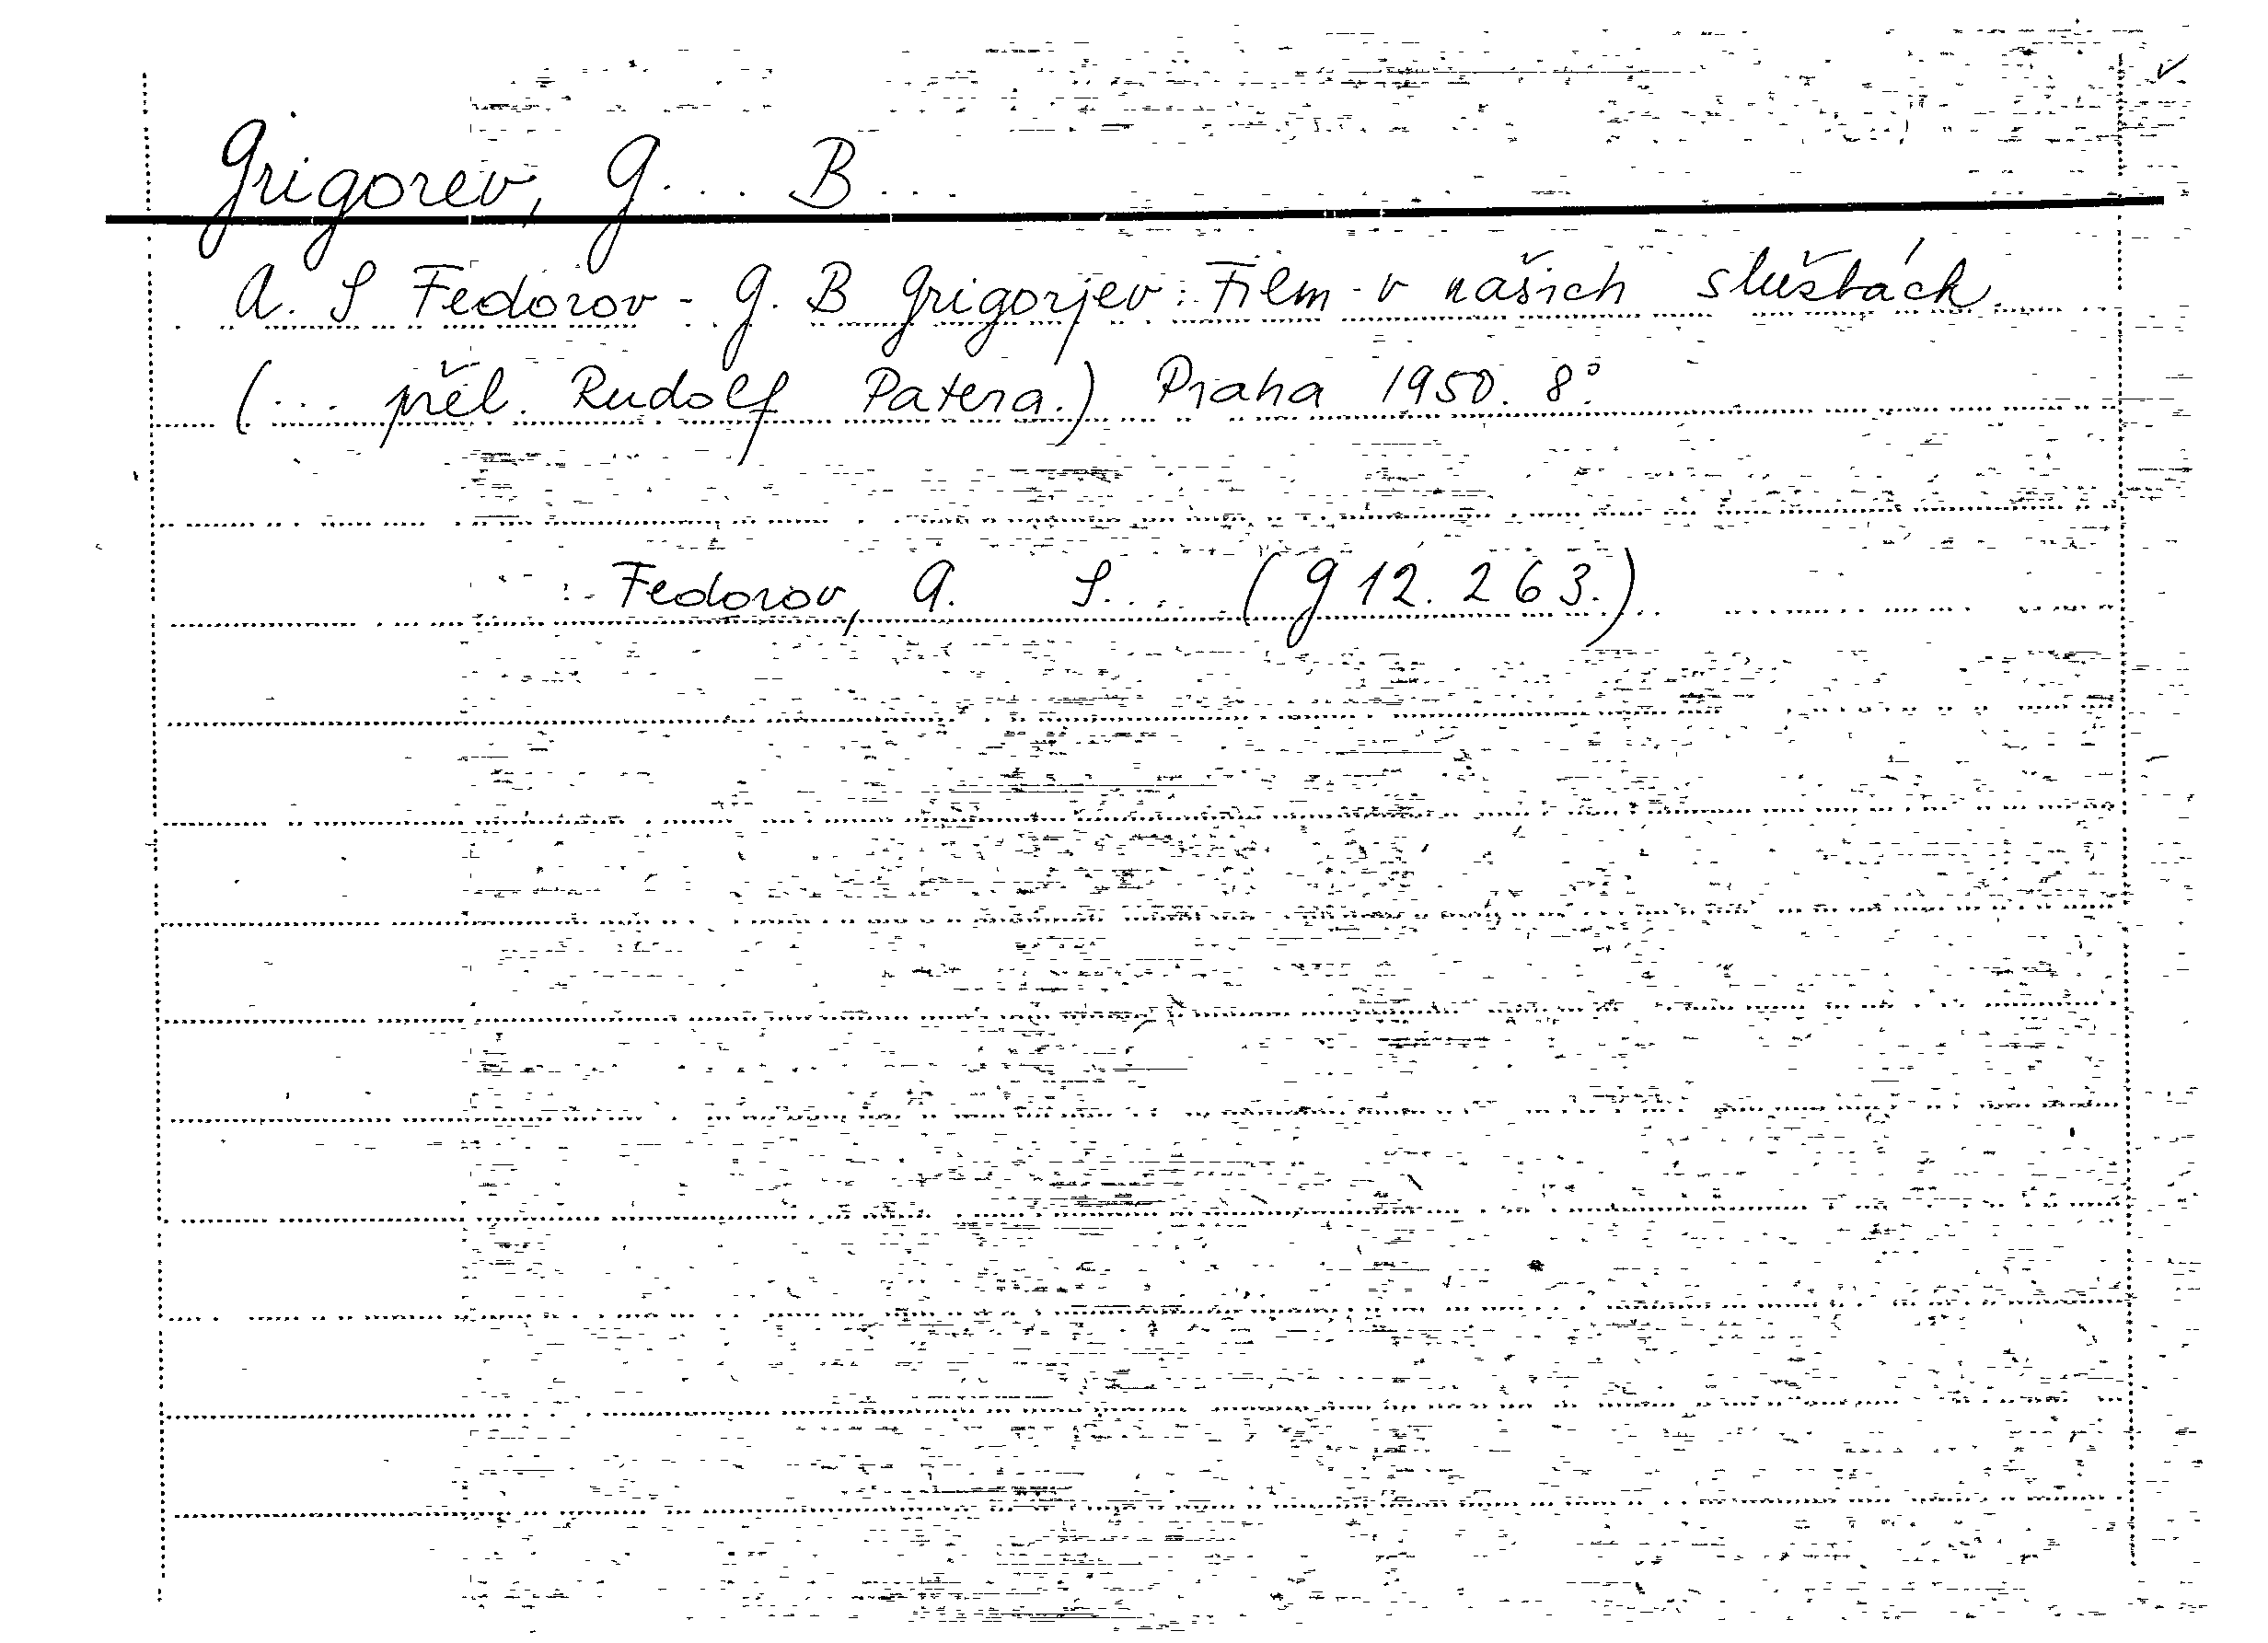 Grigorev, G... B...
A. S Fedorov - G. B Grigorjev: Film v našich službách.
(... přel. Rudolf Patera.) Praha 1950. 8°.
: Fedorov, A. S... (G 12. 263.)